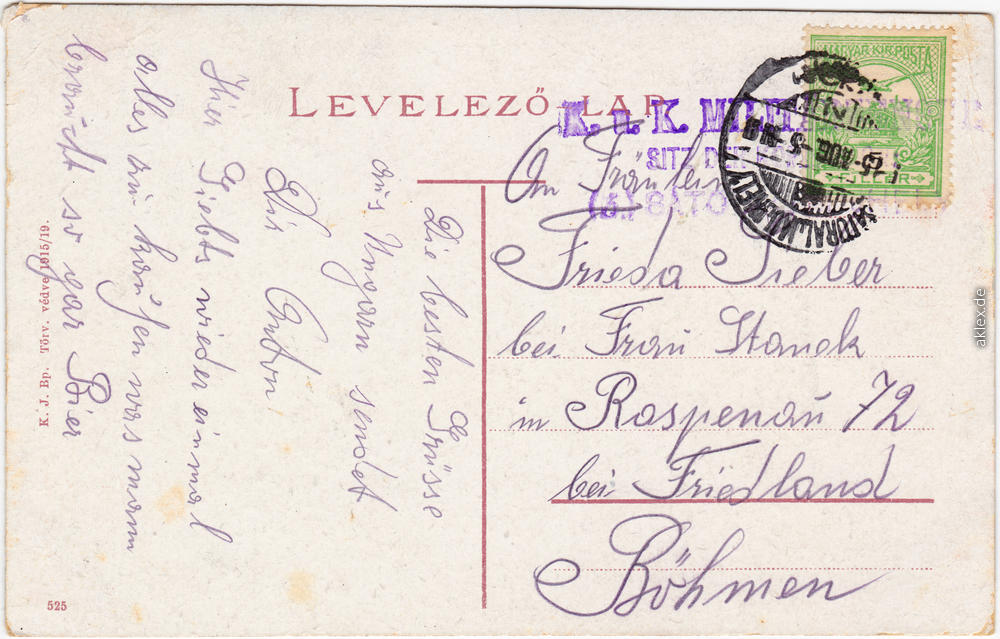 LEVELEZŐ-LAP
MAGYAR KIR. POSTA
K. u. K. MILITÄR
SITZ DER
(5.) SÁTO
SÁTORALJAÚJHELY
AUG. -5
An Fräulein
Frieda Sieber
bei Frau Stanek
in Raspenau 72
bei Friedland
Böhmen
Die besten Grüsse
aus Ungarn sendet
Dir Anton
Hier Giebts wieder einmal
alles zu kaufen was man
braucht so gar Bier
K. J. Bp. Törv. védve 1915/19.
525
aklex.de